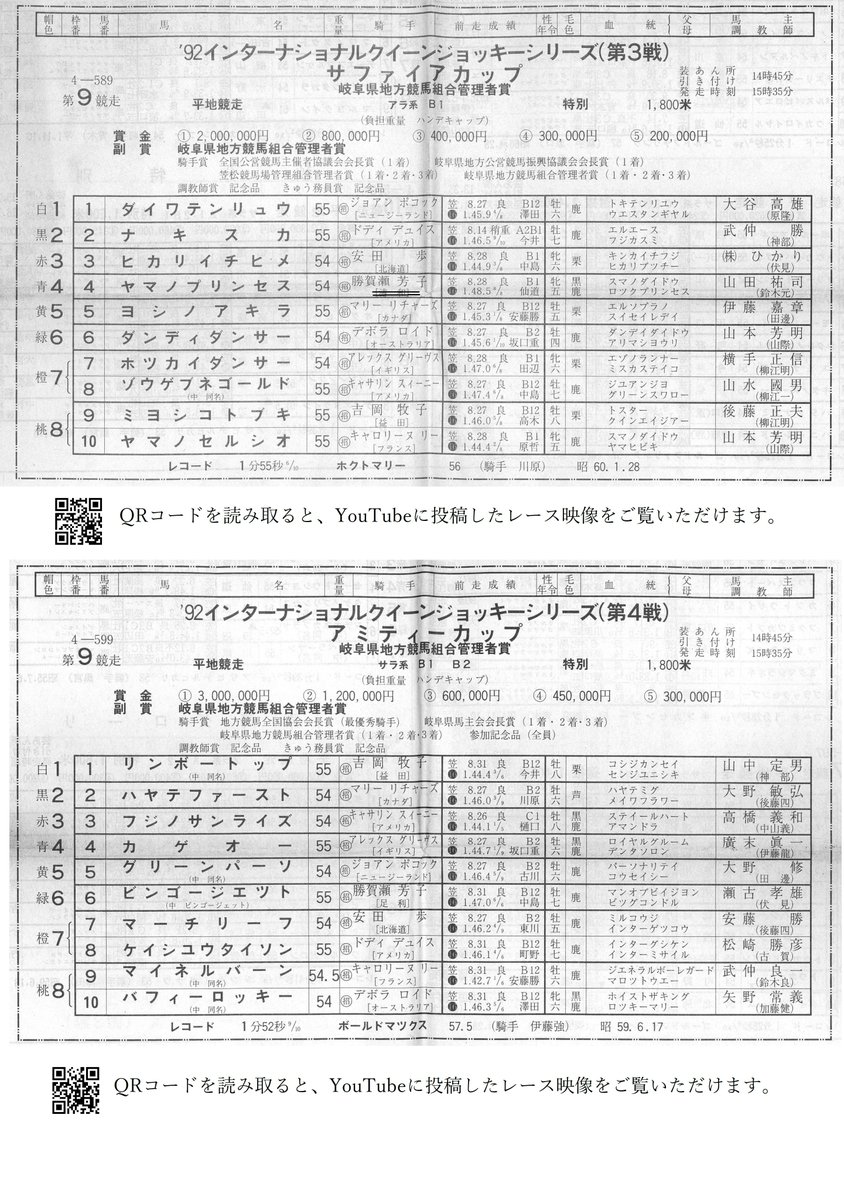 帽色 枠番 馬番 馬名 重量 騎手 前走成績 性年令 毛色 血統 父母 馬主 調教師
'92インターナショナルクイーンジョッキーシリーズ(第3戦)
サファイアカップ
岐阜県地方競馬組合管理者賞
4—589
第9競走
装あん所
引き付け 14時45分
発走時刻 15時35分
平地競走 アラ系 B1 特別 1,800米
(負担重量 ハンデキャップ)
賞金 ① 2,000,000円 ② 800,000円 ③ 400,000円 ④ 300,000円 ⑤ 200,000円
副賞 岐阜県地方競馬組合管理者賞
騎手賞 全国公営競馬主催者協議会会長賞(1着) 岐阜県地方公営競馬振興協議会会長賞(1着)
笠松競馬場管理組合管理者賞(1着・2着・3着) 岐阜県地方競馬組合管理者賞(1着・2着・3着)
調教師賞 記念品 きゅう務員賞 記念品
白1 1 ダイワテンリュウ 55 ジョアン ポコック [ニュージーランド] 笠 8.27 良 B12 1.45.9 澤田 牡六 鹿 トキテンリユウ ウエスタンギヤル 大谷高雄 (原隆)
黒2 2 ナキスカ 55 ドディ デュイス [アメリカ] 笠 8.14 稍重 A2B1 1.46.5 今井 牡七 鹿 エルエース フジカスミ 武仲勝 (神部)
赤3 3 ヒカリイチヒメ 54 安田歩 [北海道] 笠 8.28 良 B1 1.44.9 中島 牝六 栗 キンカイチフジ ヒカリブツチー ㈱ひかり (伏見)
青4 4 ヤマノプリンセス 54 勝賀瀬芳子 笠 8.28 良 B1 1.48.5 仙道 牝五 黒鹿 スマノダイドウ ロツクプリンセス 山田祐司 (鈴木元)
黄5 5 ヨシノアキラ 55 マリー リチャーズ [カナダ] 笠 8.31 良 B1 1.45.3 安藤勝 牡五 栗 エルソブラノ スイセイレデイ 伊藤嘉章 (田邊)
緑6 6 ダンディダンサー 54 デボラ ロイド [オーストラリア] 笠 8.27 良 B2 1.45.6 坂口重 牡四 鹿 ダンデイダイドウ アリマショウリ 山本芳明 (山際)
橙7 7 ホツカイダンサー 54 アレックス グリーヴス [イギリス] 笠 8.28 良 B1 1.47.0 田辺 牝六 栗 エゾノランナー ミスカステイコ 横手正信 (柳江明)
8 ゾウゲブネゴールド (中 同名) 55 キャサリン スィーニー [アメリカ] 笠 8.27 良 B12 1.47.4 中島 牡七 鹿 ジユアンジヨ グリーンスワロー 山水國男 (柳江一)
桃8 9 ミヨシコトブキ 55 吉岡牧子 [益田] 笠 8.27 良 B12 1.46.0 高木 牡八 栗 トスター クインエイジアー 後藤正夫 (柳江明)
10 ヤマノセルシオ 55 キャロリーヌ リー [フランス] 笠 8.28 良 B1 1.44.4 原哲 牡五 鹿 スマノダイドウ ヤマヒビキ 山本芳明 (山際)
レコード 1分55秒 ホクトマリー 56 (騎手 川原) 昭 60.1.28
QRコードを読み取ると、YouTubeに投稿したレース映像をご覧いただけます。
帽色 枠番 馬番 馬名 重量 騎手 前走成績 性年令 毛色 血統 父母 馬主 調教師
'92インターナショナルクイーンジョッキーシリーズ(第4戦)
アミティーカップ
岐阜県地方競馬組合管理者賞
4—599
第9競走
装あん所
引き付け 14時45分
発走時刻 15時35分
平地競走 サラ系 B1 B2 特別 1,800米
(負担重量 ハンデキャップ)
賞金 ① 3,000,000円 ② 1,200,000円 ③ 600,000円 ④ 450,000円 ⑤ 300,000円
副賞 岐阜県地方競馬組合管理者賞
騎手賞 地方競馬全国協会会長賞(最優秀騎手) 岐阜県馬主会会長賞(1着・2着・3着)
岐阜県地方競馬組合管理者賞(1着・2着・3着) 参加記念品(全員)
調教師賞 記念品 きゅう務員賞 記念品
白1 1 リンポートップ (中 同名) 55 吉岡牧子 [益田] 笠 8.31 良 B12 1.44.4 今井 牡八 栗 コシジカンセイ センジユニシキ 山中定男 (神部)
黒2 2 ハヤテファースト 54 マリー リチャーズ [カナダ] 笠 8.27 良 B2 1.46.0 川原 牡六 芦 ハヤテミグ メイワフラワー 大野敏弘 (後藤四)
赤3 3 フジノサンライズ 54 キャサリン スィーニー [アメリカ] 笠 8.26 良 C1 1.44.1 樋口 牡八 黒鹿 ステイールハート アマンドラ 高橋義和 (中山義)
青4 4 カゲオー 55 アレックス グリーヴス [イギリス] 笠 8.27 良 B2 1.44.7 坂口重 牡六 黒鹿 ロイヤルグルーム デンタソロン 廣末眞一 (伊藤龍)
黄5 5 グリーンパーソ (中 同名) 54 ジョアン ポコック [ニュージーランド] 笠 8.27 良 B2 1.46.4 古川 牡六 鹿 パーソナリテイ コウセイシー 大野修 (田邊)
緑6 6 ビンゴージエツト (中 ビンゴージェット) 55 勝賀瀬芳子 [足利] 笠 8.31 良 B12 1.47.0 中島 牡七 鹿 マンオブビイジヨン ビツグコンドル 瀬古孝雄 (伏見)
橙7 7 マーチリーフ (中 同名) 54 安田歩 [北海道] 笠 8.27 良 B2 1.46.2 東川 牡五 鹿 ミルコウジ インターゲツコウ 安藤勝 (後藤四)
8 ケイシユウタイソン 55 ドディ デュイス [アメリカ] 笠 8.31 良 B12 1.46.1 町野 牡七 鹿 インターグシケン インターミサイル 松崎勝彦 (古賀)
桃8 9 マイネルバーン (中 同名) 54.5 キャロリーヌ リー [フランス] 笠 8.31 良 B12 1.42.7 安藤勝 牡六 鹿 ジエネラルボーレガード マロツトウエー 武仲良一 (鈴木良)
10 バフィーロッキー (中 同名) 54 デボラ ロイド [オーストラリア] 笠 8.31 良 B12 1.46.3 澤田 牝六 黒鹿 ホイストザキング ロツキーマリー 矢野常義 (加藤健)
レコード 1分52秒 ボールドマツクス 57.5 (騎手 伊藤強) 昭 59.6.17
QRコードを読み取ると、YouTubeに投稿したレース映像をご覧いただけます。